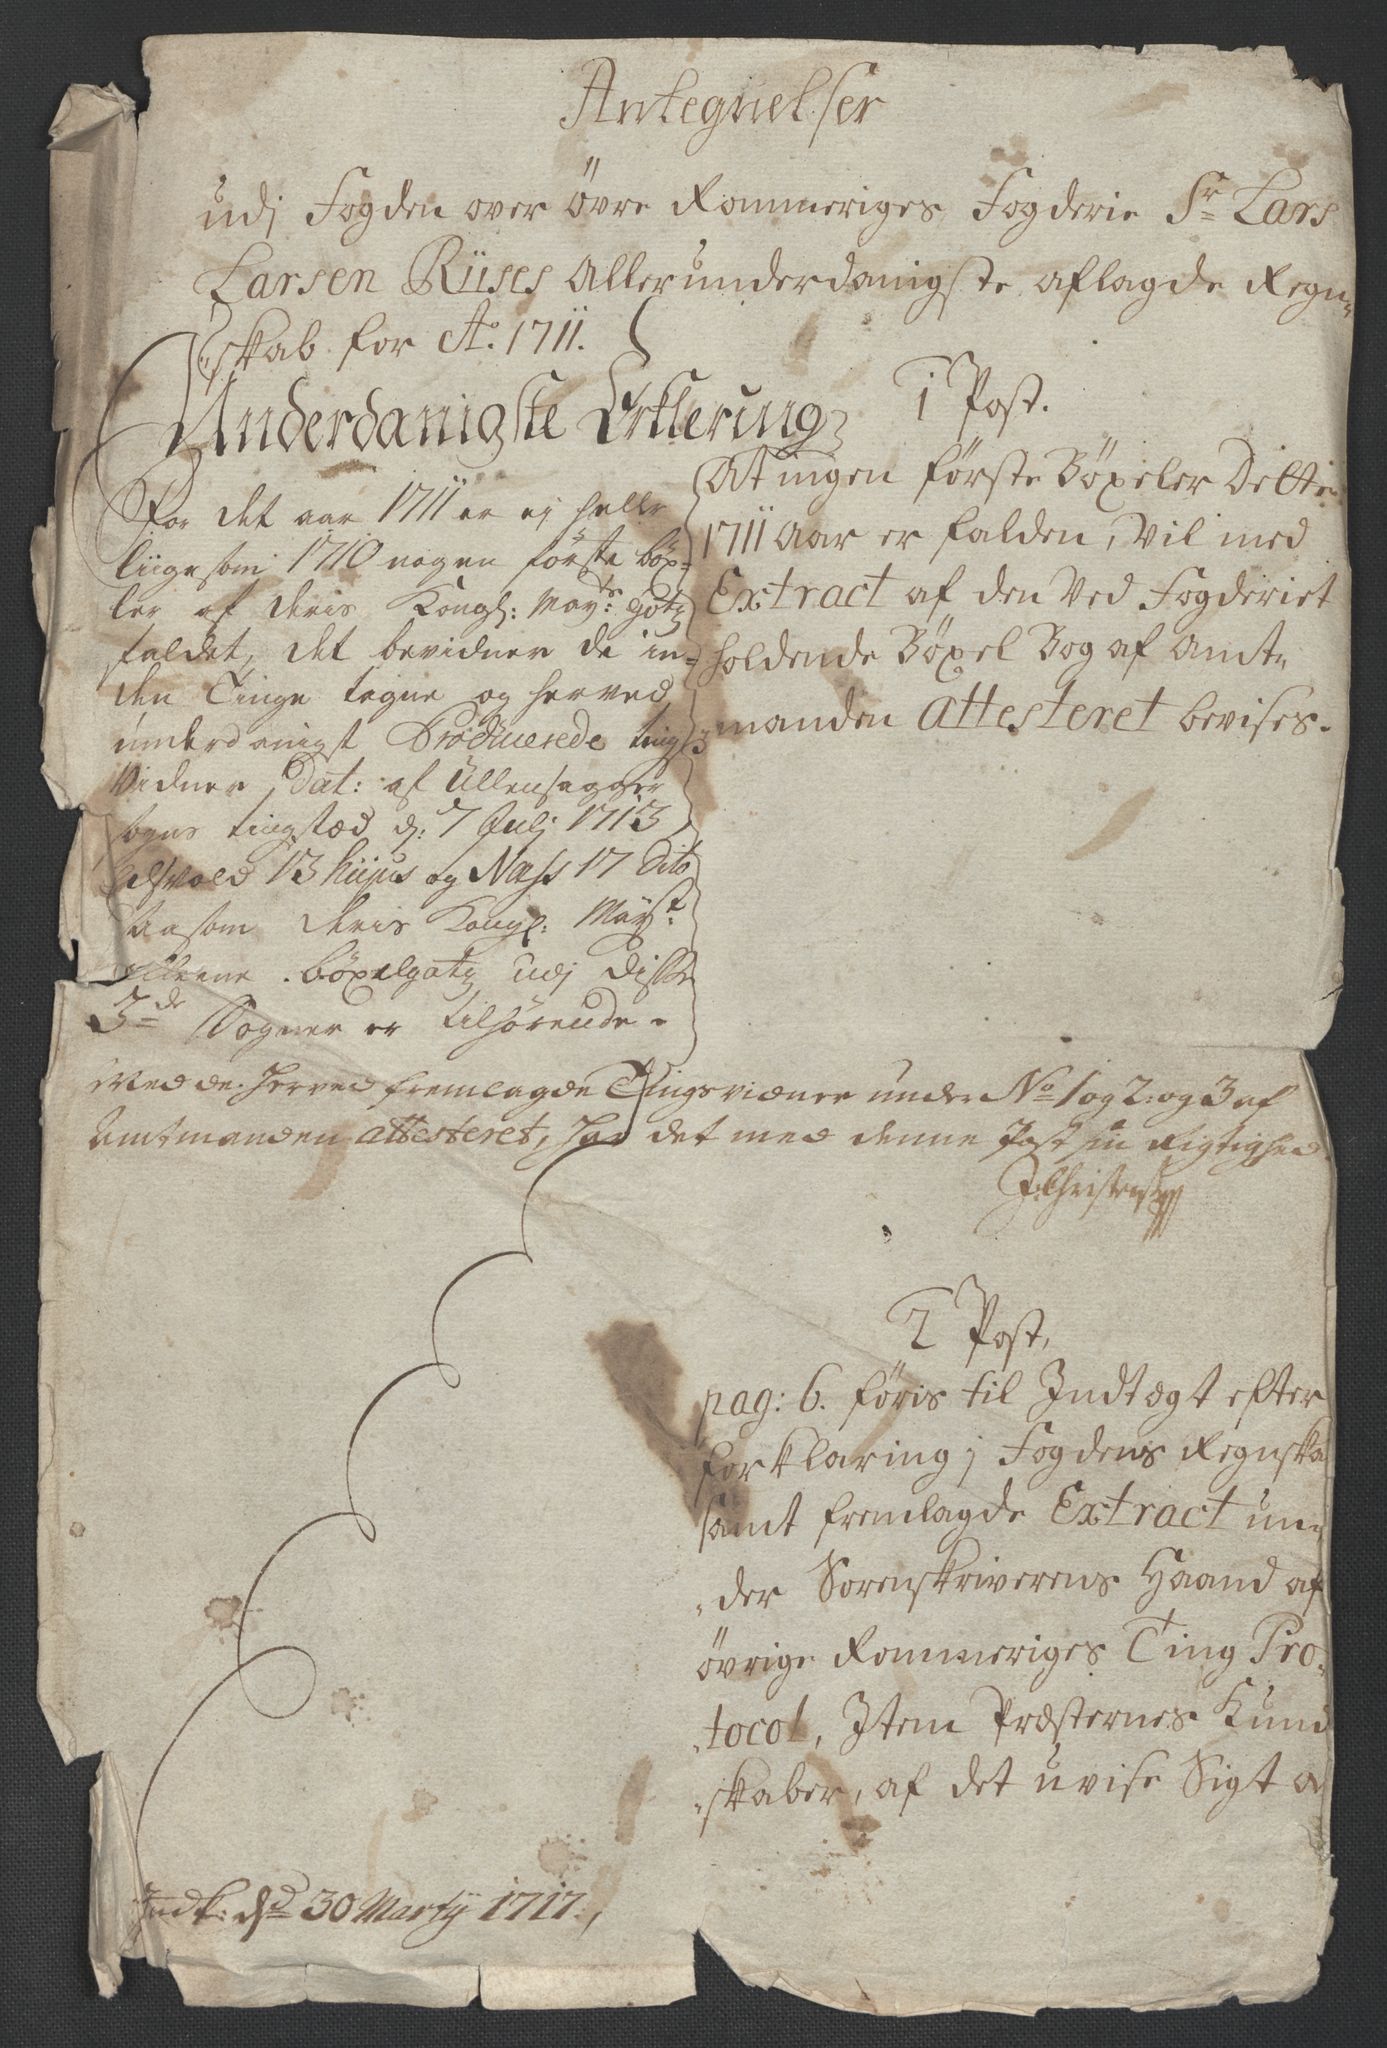 Antegnelser
udj Fogden over Övre Rommeriges Fogderie Sr Lars
Larsen Riises Allerunderdanigste aflagde Regn-
skab for Ao. 1711.
1 Post.
At ingen förste Böxeler Dette
1711 Aar er falden, Vil med
Extract af den Ved Fogderiet
holdende Böxel Bog af Amt-
manden attesteret bevises.
Underdanigste Erklering
For det aar 1711 er ej heller
liigesom 1710 nogen förste böx-
ler af deris Kongl: Mayts: Gotz
faldet, det bevidner de in-
den Tinge tagne og herved
underdanigst Producerede ting
Vidner, Dat: af Ullensagger
sogns tingstæd d: 7 Julj 1713
Edsvold 13 hujus og Næss 17 Dito
saasom deris Kongl: Mayst:
böxelgotz udj disse
3de Sogner er tilhørende.
Med de herved fremlagde Tingsvidner under No 1 og 2: og 3 af
Amtmanden attesteret, har det med denne Post sin Rigtighed
J: Christens
2 Post,
pag: 6. föris til Indtægt efter
forklaring j Fogdens Regnska
samt fremlagde Extract un-
der Sorenskriverens Haand af
övrige Rommeriges Ting Pro-
tocol, Item Præsternes Kund
skaber, af det uvise Sigt o
Indk: dsd 30 Martij 1717.